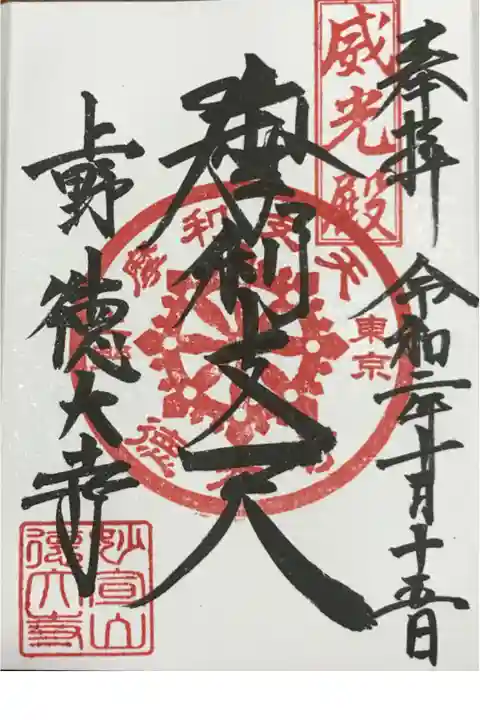 奉拝 令和二年十月十五日
威光殿
摩利支天
東京
上野 徳大寺
妙宣山
徳大寺